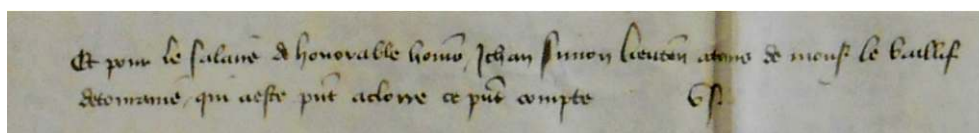 Et pour le salaire de honorable homme Jehan Simon lieuten atours de mons le baillif
detouraine qui aeste pnt aclorre ce pnt compte Vs